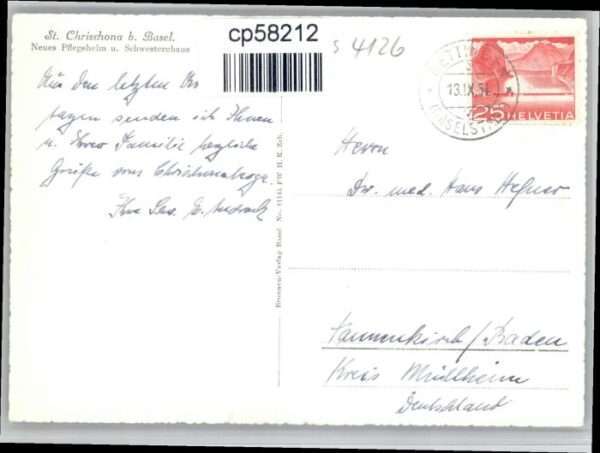 St. Chrischona b. Basel.
Neues Pflegeheim u. Schwesternhaus
cp58212
s 4126
BETTINGEN
13.IX.51
(BASELST.)
25
HELVETIA
Aus den letzten
tagen senden ich Ihnen
u. Ihrer Familie herzliche
Grüße vom Chrischonaberg.
Ihre E.
Brunnen-Verlag Basel. No. 41141 FW H. K. Zch.
Herrn
Dr. med. Hans Hefner
Tannenkirch/Baden
Kreis Müllheim
Deutschland